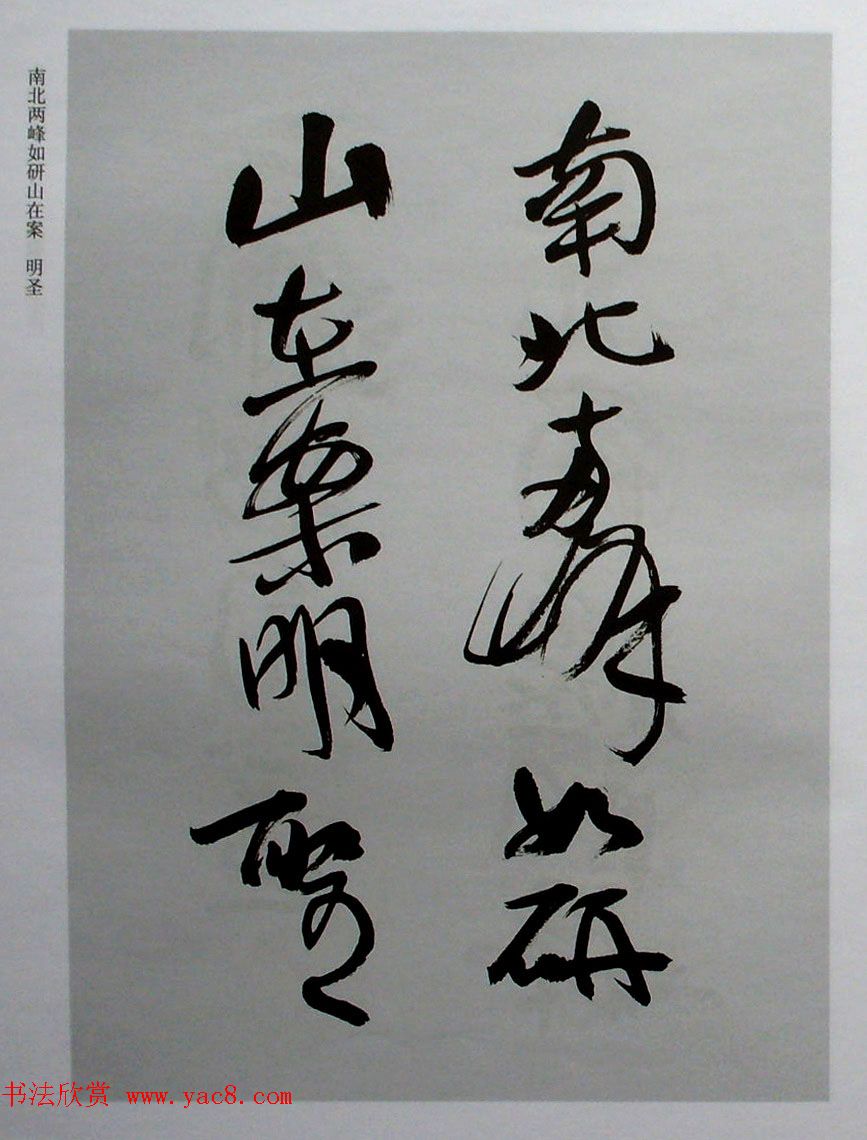 南北兩峰如研
山在案明聖
南北两峰如研山在案 明圣
书法欣赏 www.yac8.com